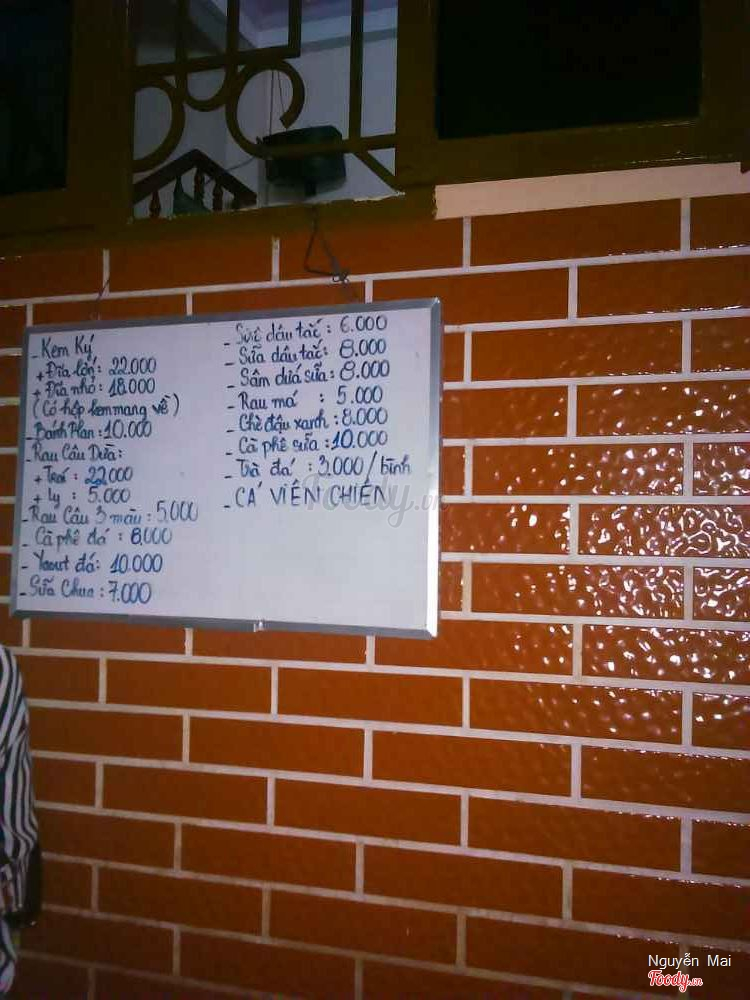 - Kem Ký
+ Đĩa lớn: 22.000
+ Đĩa nhỏ: 18.000
(Có hộp kem mang về)
- Bánh Plan: 10.000
- Rau Câu Dừa:
+ Trái: 22.000
+ Ly: 5.000
- Rau Câu 3 màu: 5.000
- Cà phê đá: 8.000
- Yaout đá: 10.000
- Sữa Chua: 7.000
- dâu tắc: 6.000
- Sữa dâu tắc: 8.000
- Sâm dứa sữa: 8.000
- Rau má: 5.000
- Chè đậu xanh: 8.000
- Cà phê sữa: 10.000
- Trà đá: 3.000/bình
- CÁ VIÊN CHIÊN
Foody.vn
Nguyễn Mai
Foody.vn